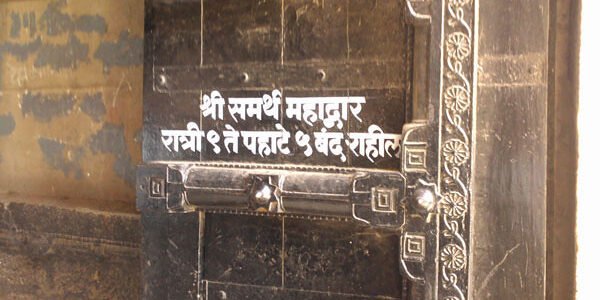 श्री समर्थ महाद्वार
रात्री ९ ते पहाटे ५ बंद राहील